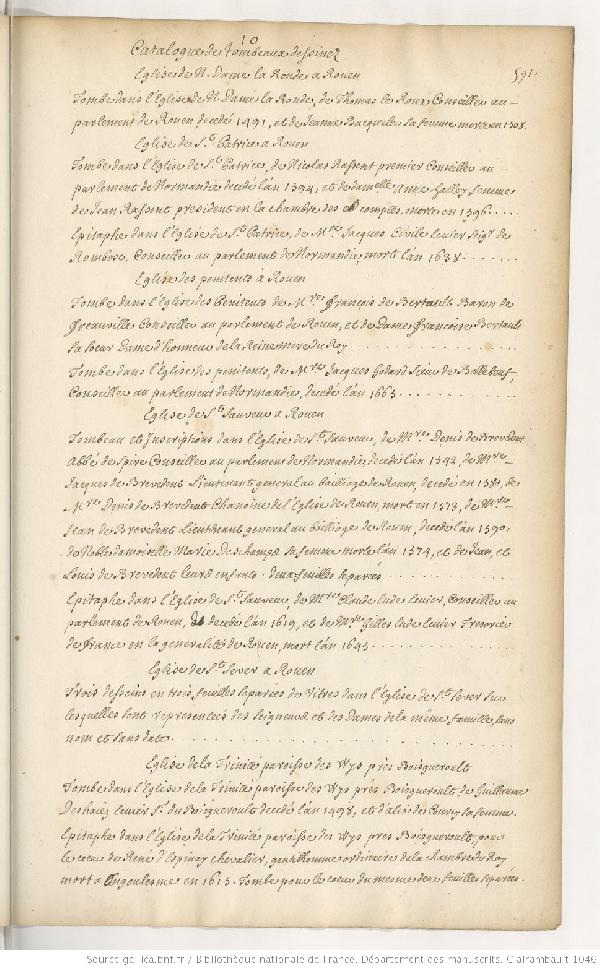 10
Catalogue de tombeaux dessinez
Eglise de N. Dame la Ronde a Rouen
591.
Tombe dans l'Eglise de N. Dame la Ronde, de Thomas le Roux Conseiller au
parlement de Rouen decedé 1491, et de Jeanne Bacquelle sa femme morte en 1508.
Eglise de St. Patrice a Rouen
Tombe dans l'Eglise de St. Patrice, de Nicolas Rassent premier Conseiller au
parlement de Normandie decedé l'an 1594, et de damelle Anne Halley femme
de Jean Rassent president en la chambre des comptes, morte en 1596....
Epitaphe dans l'Eglise de St. Patrice, de Mre. Jacques Civile ecuier Seigr. de
Rombosc, Conseiller au parlement de Normandie, mort l'an 1638.......
Eglise des penitents à Rouen
Tombe dans l'Eglise des Penitents de Mre. François de Bertault Baron de
Freauville Conseiller au parlement de Rouen, et de Dame Françoise Bertault
sa soeur Dame d'honneur de la Reine mere du Roy
Tombe dans l'Eglise des penitents, de Mre. Jacques Godard Sieur de Balbeuf,
Conseiller au parlement de Normandie, decedé l'an 1665.
Eglise de St. Sauveur a Rouen
Tombeau et Inscriptions dans l'Eglise de St. Sauveur, de Mre. Denis de Brevedent
Abbé de Spire Conseiller au parlement de Normandie decedé l'an 1542, de Mre.
Jacques de Brevedent Lieutenant general au bailliage de Rouen, decedé en 1580, de
Mre. Denis de Brevedent Chanoine de l'Eglise de Rouen, mort en 1573, de Mre.
Jean de Brevedent Lieutenant general au bailliage de Rouen, decedé l'an 1590,
de Noble damoiselle Marie Deschamps sa femme morte l'an 1574, et de Jean, et
Louis de Brevedent leurs enfents. deux feuilles separées
Epitaphe dans l'Eglise de St. Sauveur, de Mre. Claude Lude ecuier, Conseiller au
parlement de Rouen, decedé l'an 1619, et de Mre. Gilles Lude ecuier Tresorier
de france en la generalité de Rouen, mort l'an 1645.
Eglise de St. Sever a Rouen
Trois desseins en trois feuilles separées de Vitres dans l'Eglise de St. Sever sur
lesquelles sont representées des Seigneurs et des Dames de la même famille, sans
nom et sans date.
Eglise de la Trinité paroisse des Wys près Boisgueroult
Tombe dans l'Eglise de la Trinité paroisse des Wys près Boisgueroult, de Guillaume
Deshaies ecuier Sr. du Boisgueroult decedé l'an 1498, et d'alis de Courcy sa femme.
Epitaphe dans l'Eglise de la Trinité paroisse des Wys près Boisgueroult, pour
le coeur de René d'Espinay chevalier, gentilhomme ordinaire de la chambre du Roy
mort a Angoulesme en 1615. Tombe pour le coeur du mesme. deux feuilles separées.
Source gallica.bnf.fr / Bibliothèque nationale de France. Département des manuscrits. Clairambault 1046